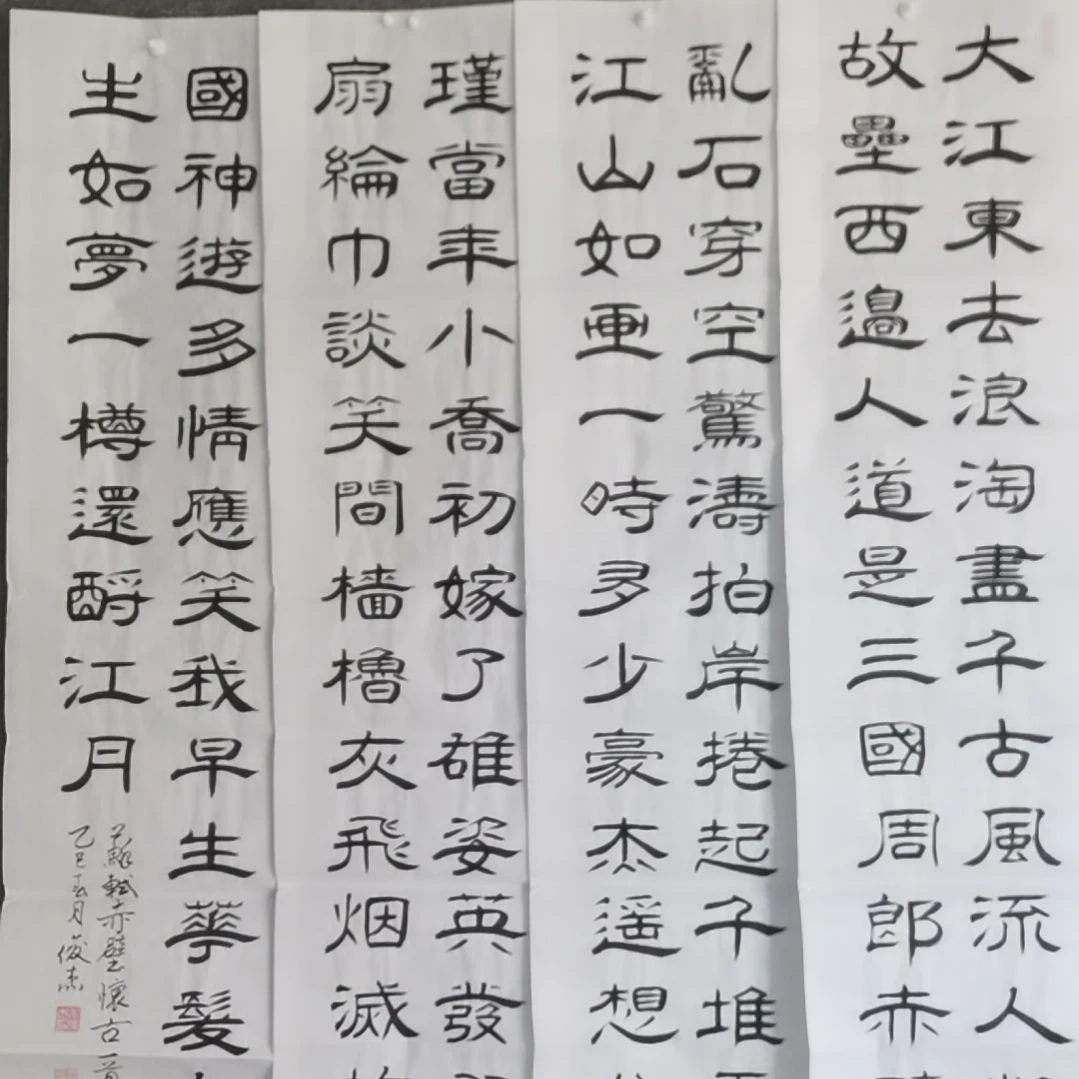 大江東去浪淘盡千古風流人
故壘西邊人道是三國周郎赤
亂石穿空驚濤拍岸捲起千堆
江山如畫一時多少豪杰遥想
瑾當年小喬初嫁了雄姿英發
扇綸巾談笑間檣櫓灰飛烟滅
國神遊多情應笑我早生華髮
生如夢一樽還酹江月
蘇軾赤壁懷古一首
乙巳五月俊杰